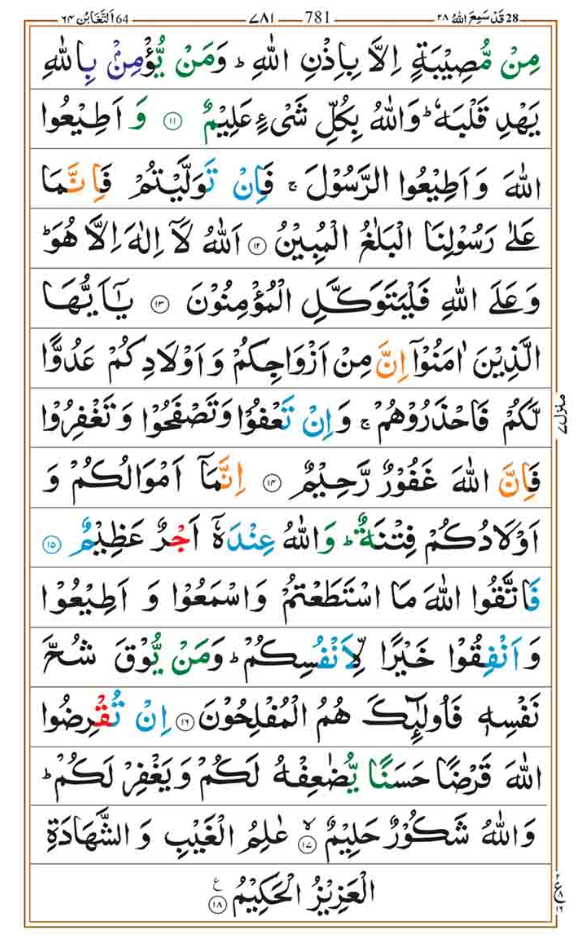 28 قَدۡ سَمِعَ اللّٰهُ ۲۸ 781 ۷۸۱ 64 اَلتَّغَابُن ۶۴
مِنۡ مُّصِيۡبَةٍ اِلَّا بِاِذۡنِ اللّٰهِ ؕ وَمَنۡ يُّؤۡمِنۡۢ بِاللّٰهِ
يَهۡدِ قَلۡبَهٗ ؕ وَاللّٰهُ بِكُلِّ شَىۡءٍ عَلِيۡمٌ ۱۱ وَ اَطِيۡعُوا
اللّٰهَ وَ اَطِيۡعُوا الرَّسُوۡلَ ۚ فَاِنۡ تَوَلَّيۡتُمۡ فَاِنَّمَا
عَلٰى رَسُوۡلِنَا الۡبَلٰغُ الۡمُبِيۡنُ ۱۲ اَللّٰهُ لَاۤ اِلٰهَ اِلَّا هُوَ ؕ
وَعَلَى اللّٰهِ فَلۡيَتَوَكَّلِ الۡمُؤۡمِنُوۡنَ ۱۳ يٰۤاَيُّهَا
الَّذِيۡنَ اٰمَنُوۡۤا اِنَّ مِنۡ اَزۡوَاجِكُمۡ وَ اَوۡلَادِكُمۡ عَدُوًّا
لَّكُمۡ فَاحۡذَرُوۡهُمۡ ۚ وَ اِنۡ تَعۡفُوۡا وَتَصۡفَحُوۡا وَتَغۡفِرُوۡا
فَاِنَّ اللّٰهَ غَفُوۡرٌ رَّحِيۡمٌ ۱۴ اِنَّمَاۤ اَمۡوَالُكُمۡ وَ
اَوۡلَادُكُمۡ فِتۡنَةٌ ؕ وَاللّٰهُ عِنۡدَهٗۤ اَجۡرٌ عَظِيۡمٌ ۱۵
فَاتَّقُوا اللّٰهَ مَا اسۡتَطَعۡتُمۡ وَاسۡمَعُوۡا وَ اَطِيۡعُوۡا
وَ اَنۡفِقُوۡا خَيۡرًا لِّاَنۡفُسِكُمۡ ؕ وَمَنۡ يُّوۡقَ شُحَّ
نَفۡسِهٖ فَاُولٰٓٮِٕكَ هُمُ الۡمُفۡلِحُوۡنَ ۱۶ اِنۡ تُقۡرِضُوا
اللّٰهَ قَرۡضًا حَسَنًا يُّضٰعِفۡهُ لَكُمۡ وَيَغۡفِرۡ لَكُمۡ ؕ
وَاللّٰهُ شَكُوۡرٌ حَلِيۡمٌ ۙ ۱۷ عٰلِمُ الۡغَيۡبِ وَ الشَّهَادَةِ
الۡعَزِيۡزُ الۡحَكِيۡمُ ۱۸ ع
منزل ۷